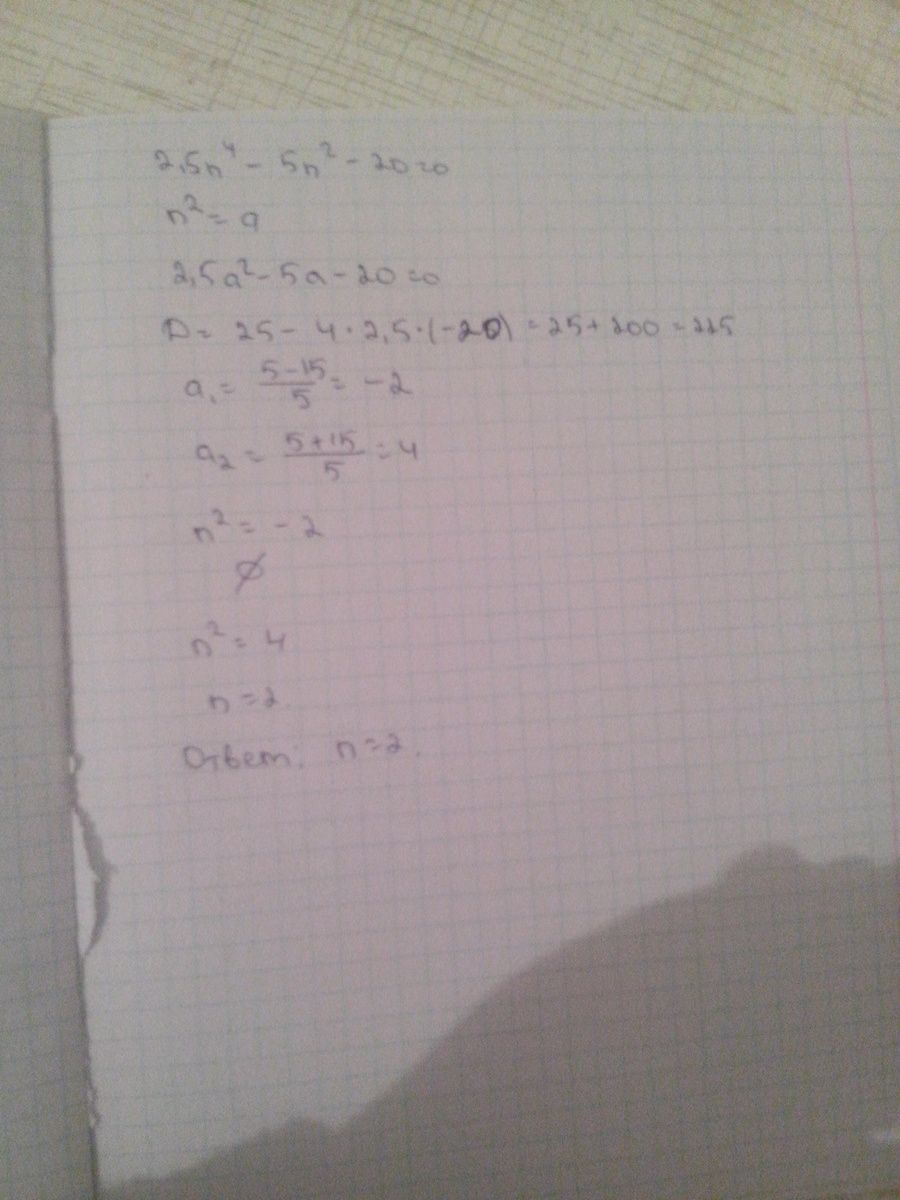 2,5n⁴ - 5n² - 20=0
n² = a
2,5a² - 5a - 20=0
D = 25 - 4·2,5·(-20) = 25+200 = 225
a₁ = (5-15)/5 = -2
a₂ = (5+15)/5 = 4
n² = -2
∅
n² = 4
n = 2.
Ответ: n=2.